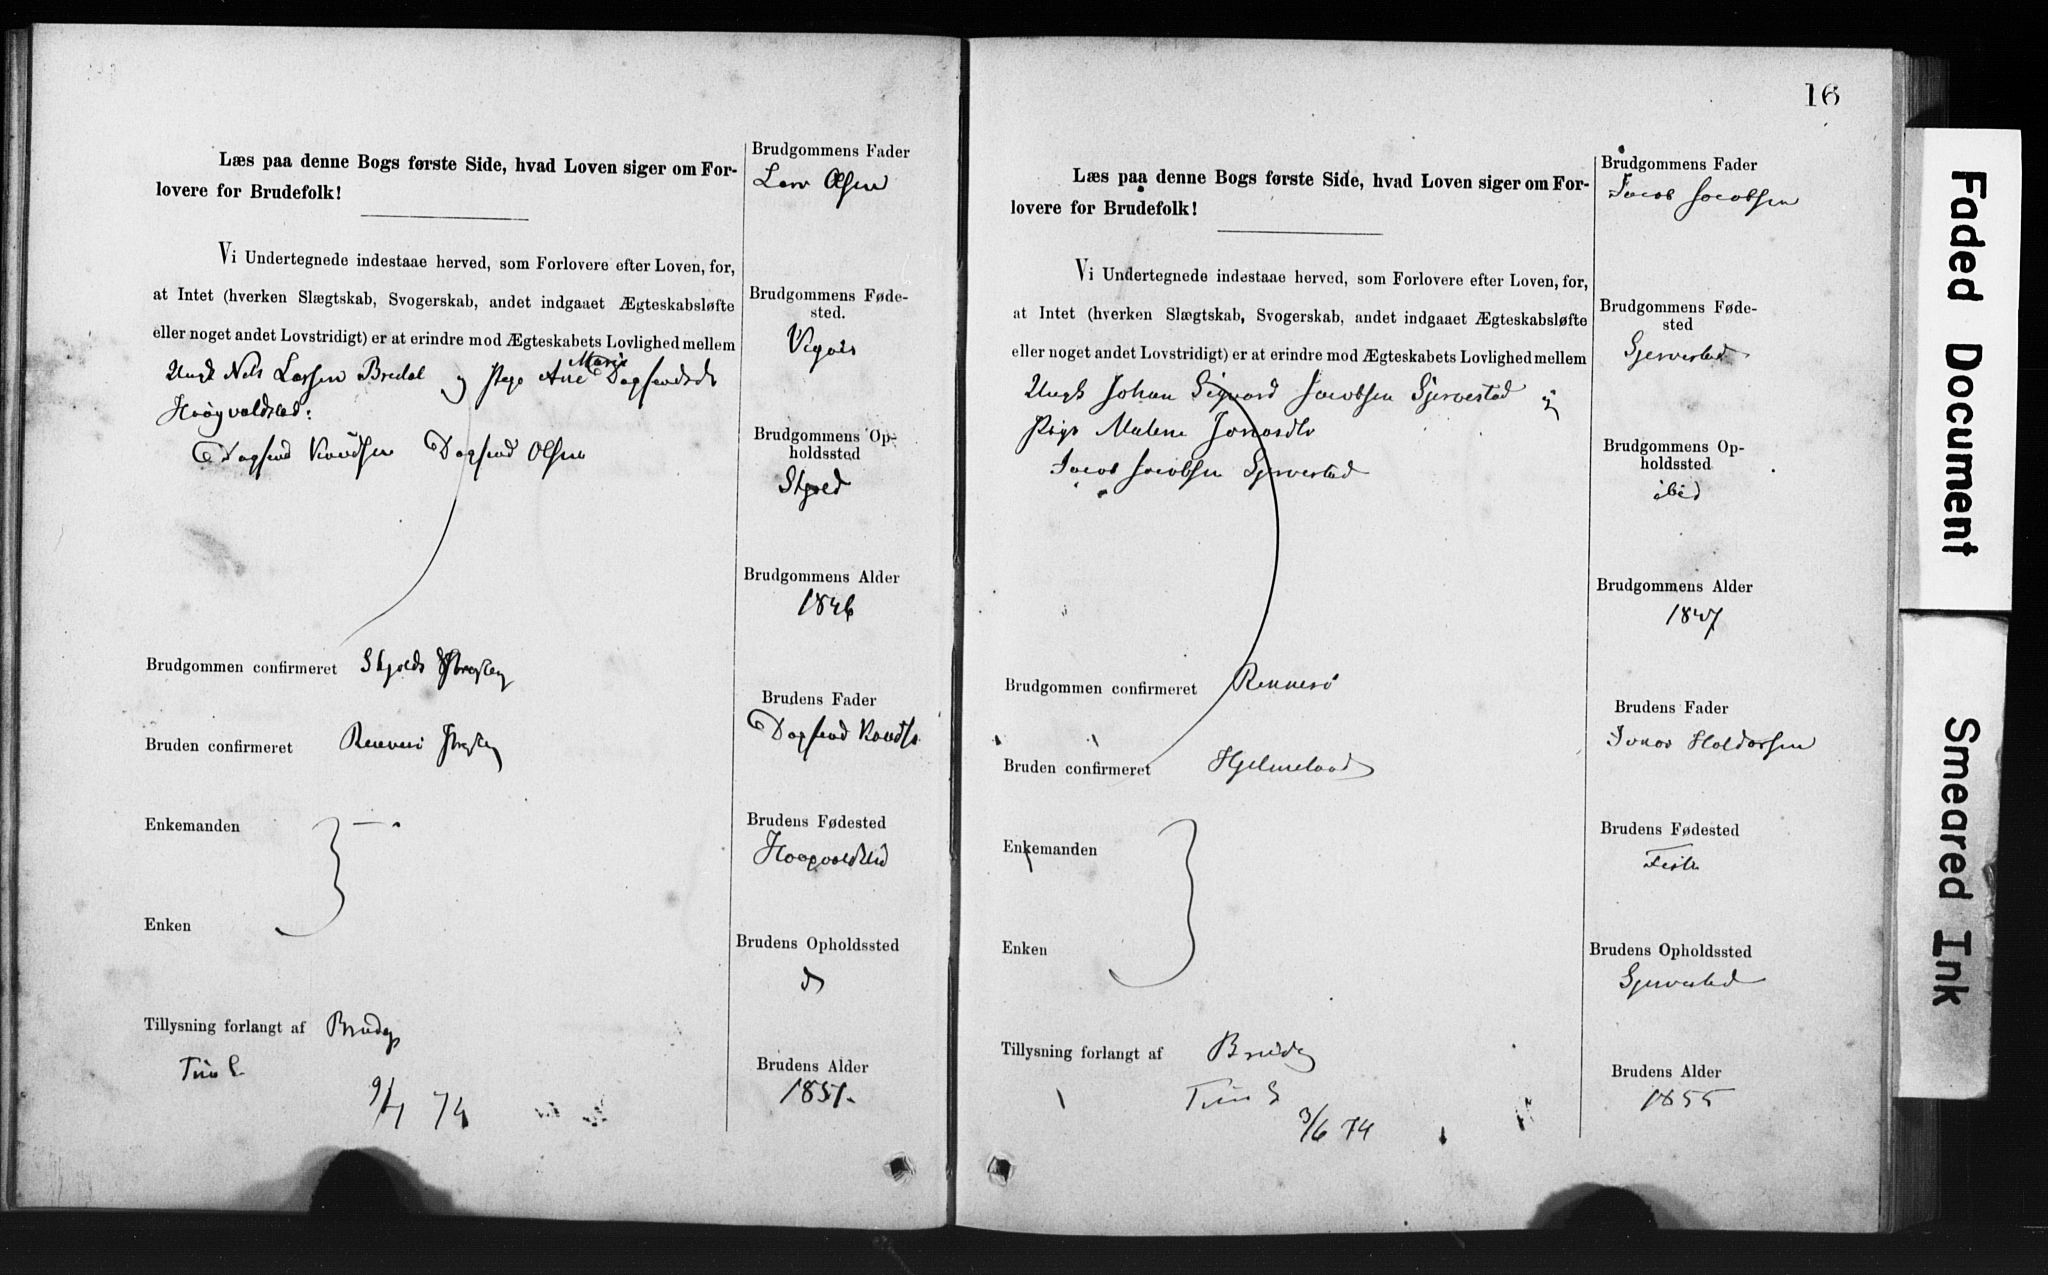 Læs paa denne Bogs første Side, hvad Loven siger om For-
lovere for Brudefolk!
Vi Undertegnede indestaae herved, som Forlovere efter Loven, for,
at Intet (hverken Slægtskab, Svogerskab, andet indgaaet Ægteskabsløfte
eller noget andet Lovstridigt) er at erindre mod Ægteskabets Lovlighed mellem
Ungk Nels Larsen Bredal og Pige Ane Marie Dagfindsdr
Dagfind Knudsen Dagfind Olsen
Brudgommen confirmeret Skjolds
Bruden confirmeret Rennesø
Enkemanden
Enken
Tillysning forlangt af Brudg
9/4 74
Brudgommens Fader
Lars Olsen
Brudgommens Føde-
sted.
Brudgommens Op-
holdssted
Skjold
Brudgommens Alder
1846
Brudens Fader
Dagfind Knuds
Brudens Fødested
Brudens Opholdssted
Brudens Alder
1851.
16
Læs paa denne Bogs første Side, hvad Loven siger om For-
lovere for Brudefolk!
Vi Undertegnede indestaae herved, som Forlovere efter Loven, for,
at Intet (hverken Slægtskab, Svogerskab, andet indgaaet Ægteskabsløfte
eller noget andet Lovstridigt) er at erindre mod Ægteskabets Lovlighed mellem
Ungk Johan Sigvard Jacobsen Gjervested og
Pige Malene Jonasdtr
Jacob Jacobsen Gjervested
Brudgommen confirmeret Rennesø
Bruden confirmeret Hjelmeland
Enkemanden
Enken
Tillysning forlangt af Brudg
3/6 74
Brudgommens Fader
Jacob Jacobsen
Brudgommens Føde-
sted
Gjervested
Brudgommens Op-
holdssted
ibid
Brudgommens Alder
1847
Brudens Fader
Jonas Haldorsen
Brudens Fødested
Brudens Opholdssted
Gjervested
Brudens Alder
1855
Faded Document
Smeared Ink